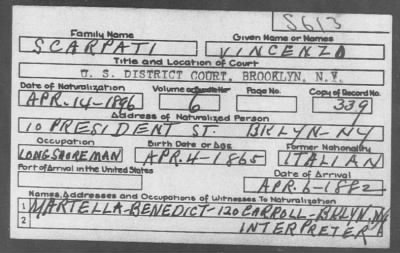 S613
Family Name Given Name or Names
SCARPATI VINCENZO
Title and Location of Court
U. S. DISTRICT COURT, BROOKLYN, N.Y.
Date of Naturalization Volume or Bundle No. Page No. Copy of Record No.
APR.-14-1896 6 339
Address of Naturalized Person
10 PRESIDENT ST. BKLYN-NY
Occupation Birth Date or Age Former Nationality
LONGSHOREMAN APR.4-1865 ITALIAN
Port of Arrival in the United States Date of Arrival
APR.6-1882
Names, Addresses and Occupations of Witnesses To Naturalization
1 MARTELLA-BENEDICT-120 CARROLL-BKLYN, NY
2 INTERPRETER